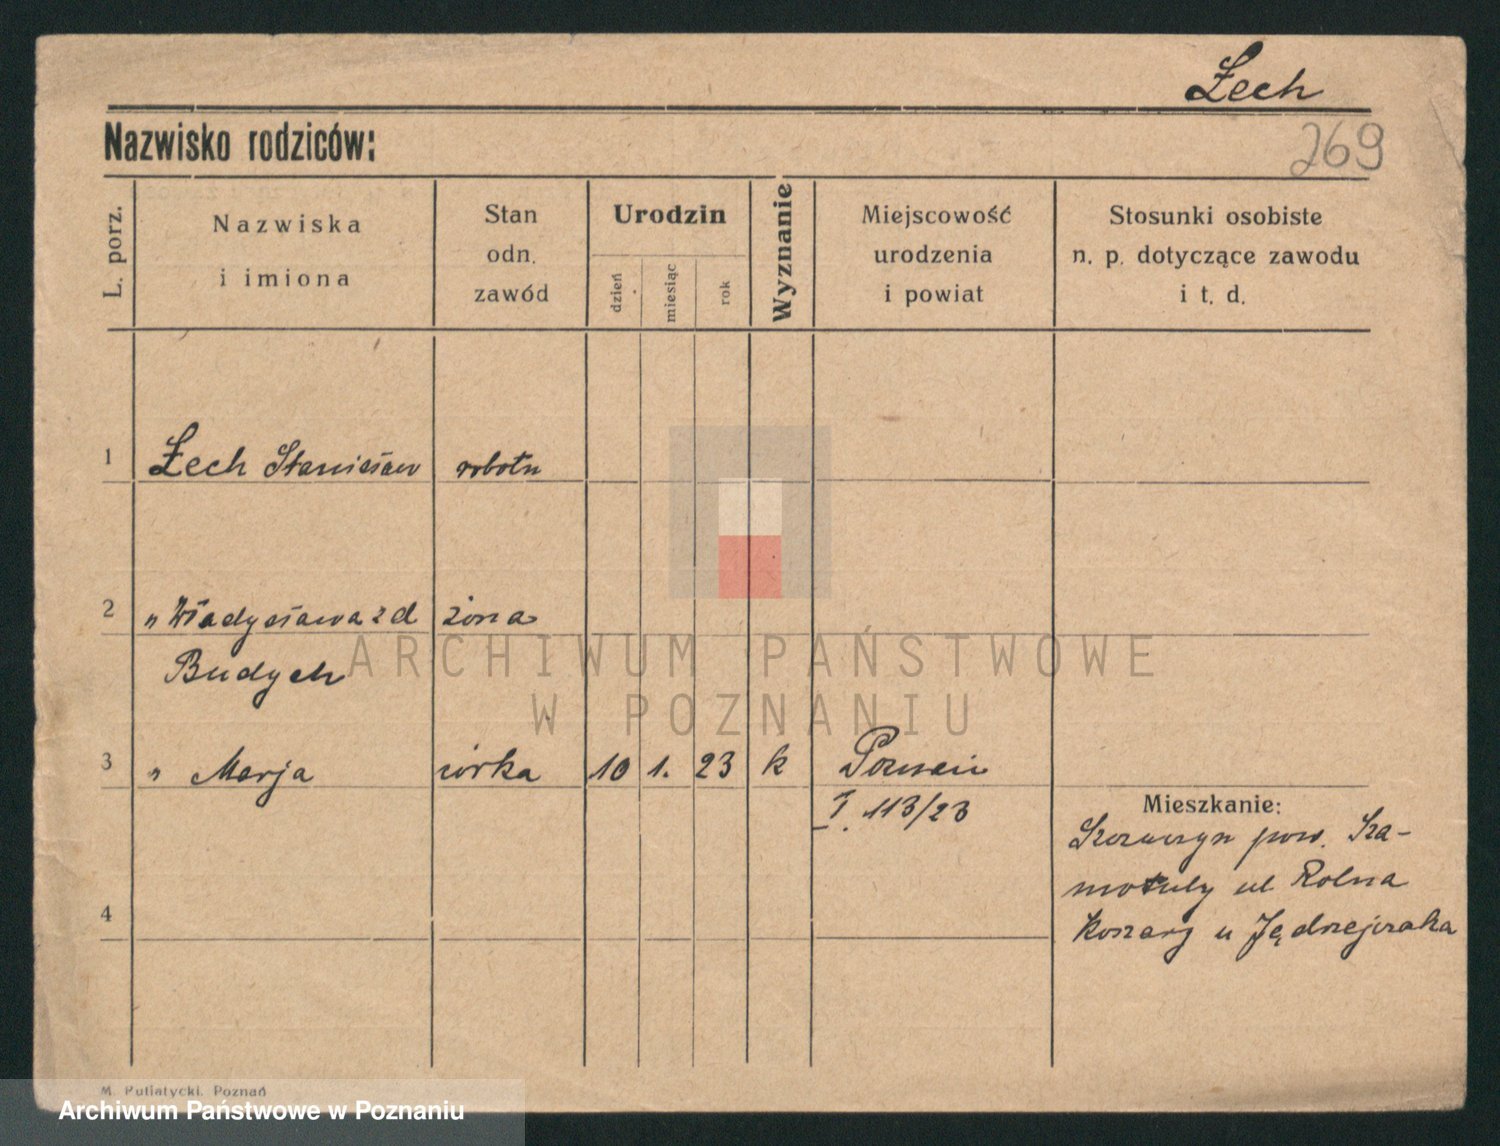 Żech
Nazwisko rodziców:
269
L. porz.
Nazwiska
i imiona
Stan
odn.
zawód
Urodzin
dzień
miesiąc
rok
Wyznanie
Miejscowość
urodzenia
i powiat
Stosunki osobiste
n. p. dotyczące zawodu
i t. d.
1 Żech Stanisław robotn
2 " Władysława z d żona
Budych
3 " Marja córka 10 1. 23 k Poznań
I. 113/23
Mieszkanie:
pow. Sza-
motuły ul Rolna
Koszary u Jędrzejczaka
4
M. Putiatycki, Poznań
ARCHIWUM PAŃSTWOWE
W POZNANIU
Archiwum Państwowe w Poznaniu